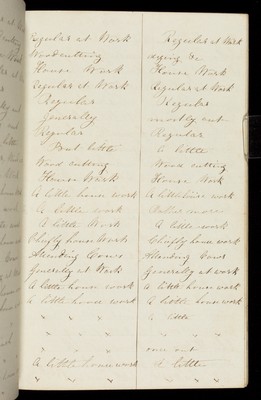 Regular at Work Regular at Work
Woodcutting &c
House Work House Work
Regular at Work Regular at Work
Regular Regular
Generally mostly out
Regular Regular
But little A little
Wood cutting Wood cutting
House Work House Work
A little house work A little house work
A little work
A little work A little work
Chiefly house work Chiefly house work
Attending Cows Attending Cows
Generally at Work Generally at work
A little house work A little house work
A little house work A little house work
" " " A little
" " "
" " " out
A little house work A little
" " " " " "